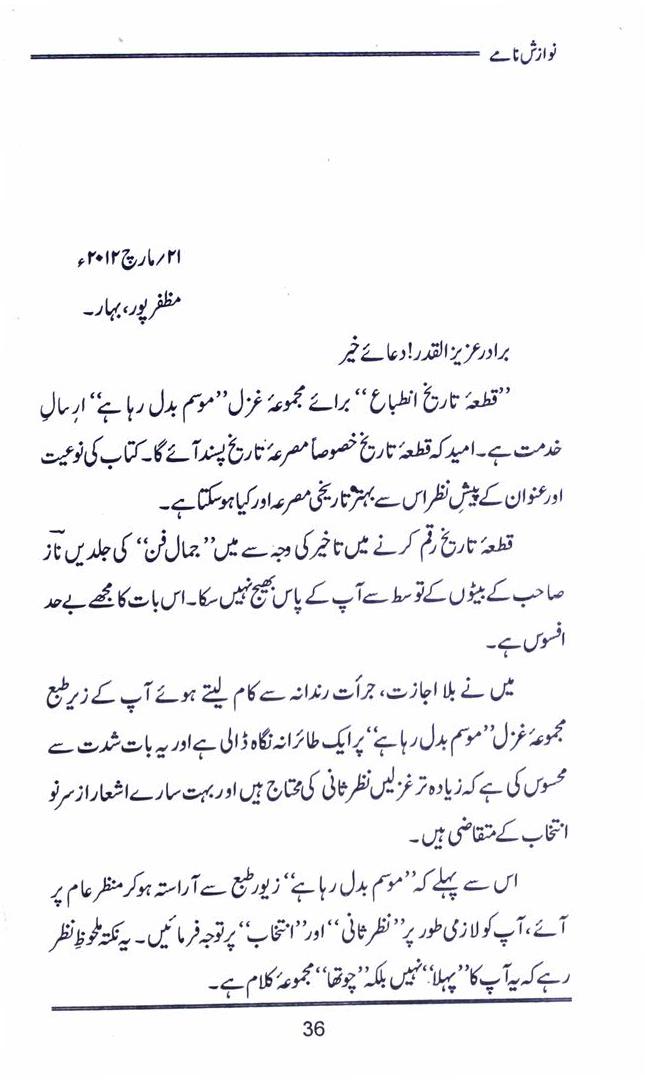 نوازش نامے
۲۱؍مارچ ۲۰۱۲ء
مظفر پور، بہار۔
برادر عزیز القدر! دعائے خیر
”قطعۂ تاریخ انطباع“ برائے مجموعۂ غزل ”موسم بدل رہا ہے“ ارسالِ
خدمت ہے۔ امید کہ قطعۂ تاریخ خصوصاً مصرعۂ تاریخ پسند آئے گا۔ کتاب کی نوعیت
اور عنوان کے پیشِ نظر اس سے بہتر تاریخی مصرعہ اور کیا ہو سکتا ہے۔
قطعۂ تاریخ رقم کرنے میں تاخیر کی وجہ سے میں ”جمال فن“ کی جلدیں نازؔ
صاحب کے بیٹوں کے توسط سے آپ کے پاس بھیج نہیں سکا۔ اس بات کا مجھے بے حد
افسوس ہے۔
میں نے بلا اجازت، جرأت رندانہ سے کام لیتے ہوئے آپ کے زیر طبع
مجموعۂ غزل ”موسم بدل رہا ہے“ پر ایک طائرانہ نگاہ ڈالی ہے اور یہ بات شدت سے
محسوس کی ہے کہ زیادہ تر غزلیں نظر ثانی کی محتاج ہیں اور بہت سارے اشعار از سر نو
انتخاب کے متقاضی ہیں۔
اس سے پہلے کہ ”موسم بدل رہا ہے“ زیور طبع سے آراستہ ہو کر منظر عام پر
آئے، آپ کو لازمی طور پر ”نظر ثانی“ اور ”انتخاب“ پر توجہ فرمائیں۔ یہ نکتہ ملحوظِ نظر
رہے کہ یہ آپ کا ”پہلا“ نہیں بلکہ ”چوتھا“ مجموعۂ کلام ہے۔
36